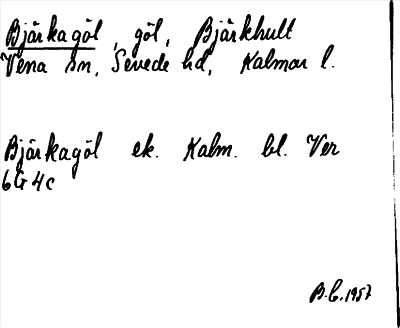 Bjärkagöl, göl, Bjärkhult
Vena sn, Sevede hd, Kalmar l.
Bjärkagöl ek. Kalm. bl. Ver
6G 4c
B.L. 1957